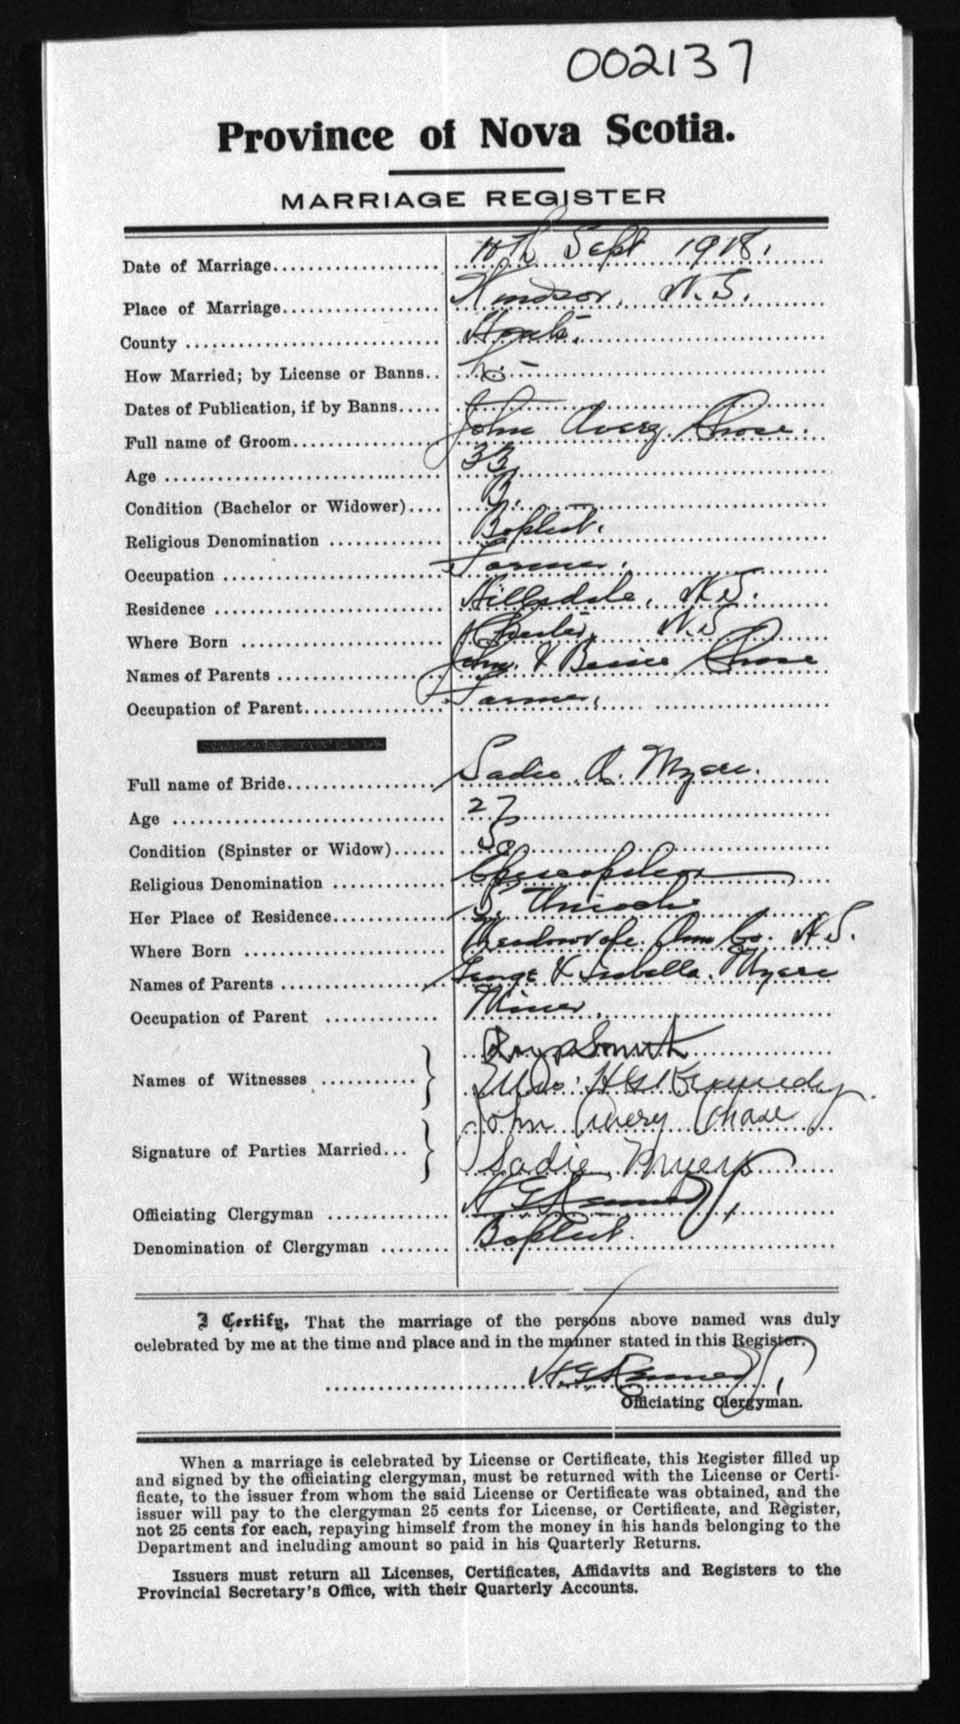 002137
Province of Nova Scotia.
MARRIAGE REGISTER
Date of Marriage 10th Sept 1918.
Place of Marriage Windsor, N.S.
County Hants.
How Married; by License or Banns L.
Dates of Publication, if by Banns
Full name of Groom John Avery Chase.
Age 33
Condition (Bachelor or Widower) B.
Religious Denomination Baptist.
Occupation Farmer.
Residence Hillsdale, N.S.
Where Born Chester, N.S
Names of Parents John & Bessie Chase
Occupation of Parent Farmer.
Full name of Bride Sadie A. Myers.
Age 27
Condition (Spinster or Widow) S
Religious Denomination Episcopalian
Her Place of Residence S. Uniacke
Where Born Meadowvale Ann Co. N.S.
Names of Parents George & Isabella Myers
Occupation of Parent Miner.
Names of Witnesses Smith
Mrs. H G Kennedy.
Signature of Parties Married John Avery Chase
Sadie Myers
Officiating Clergyman H G Kennedy,
Denomination of Clergyman Baptist.
I Certify, That the marriage of the persons above named was duly
celebrated by me at the time and place and in the manner stated in this Register.
H.G. Kennedy,
Officiating Clergyman.
When a marriage is celebrated by License or Certificate, this Register filled up
and signed by the officiating clergyman, must be returned with the License or Certi-
ficate, to the issuer from whom the said License or Certificate was obtained, and the
issuer will pay to the clergyman 25 cents for License, or Certificate, and Register,
not 25 cents for each, repaying himself from the money in his hands belonging to the
Department and including amount so paid in his Quarterly Returns.
Issuers must return all Licenses, Certificates, Affidavits and Registers to the
Provincial Secretary's Office, with their Quarterly Accounts.